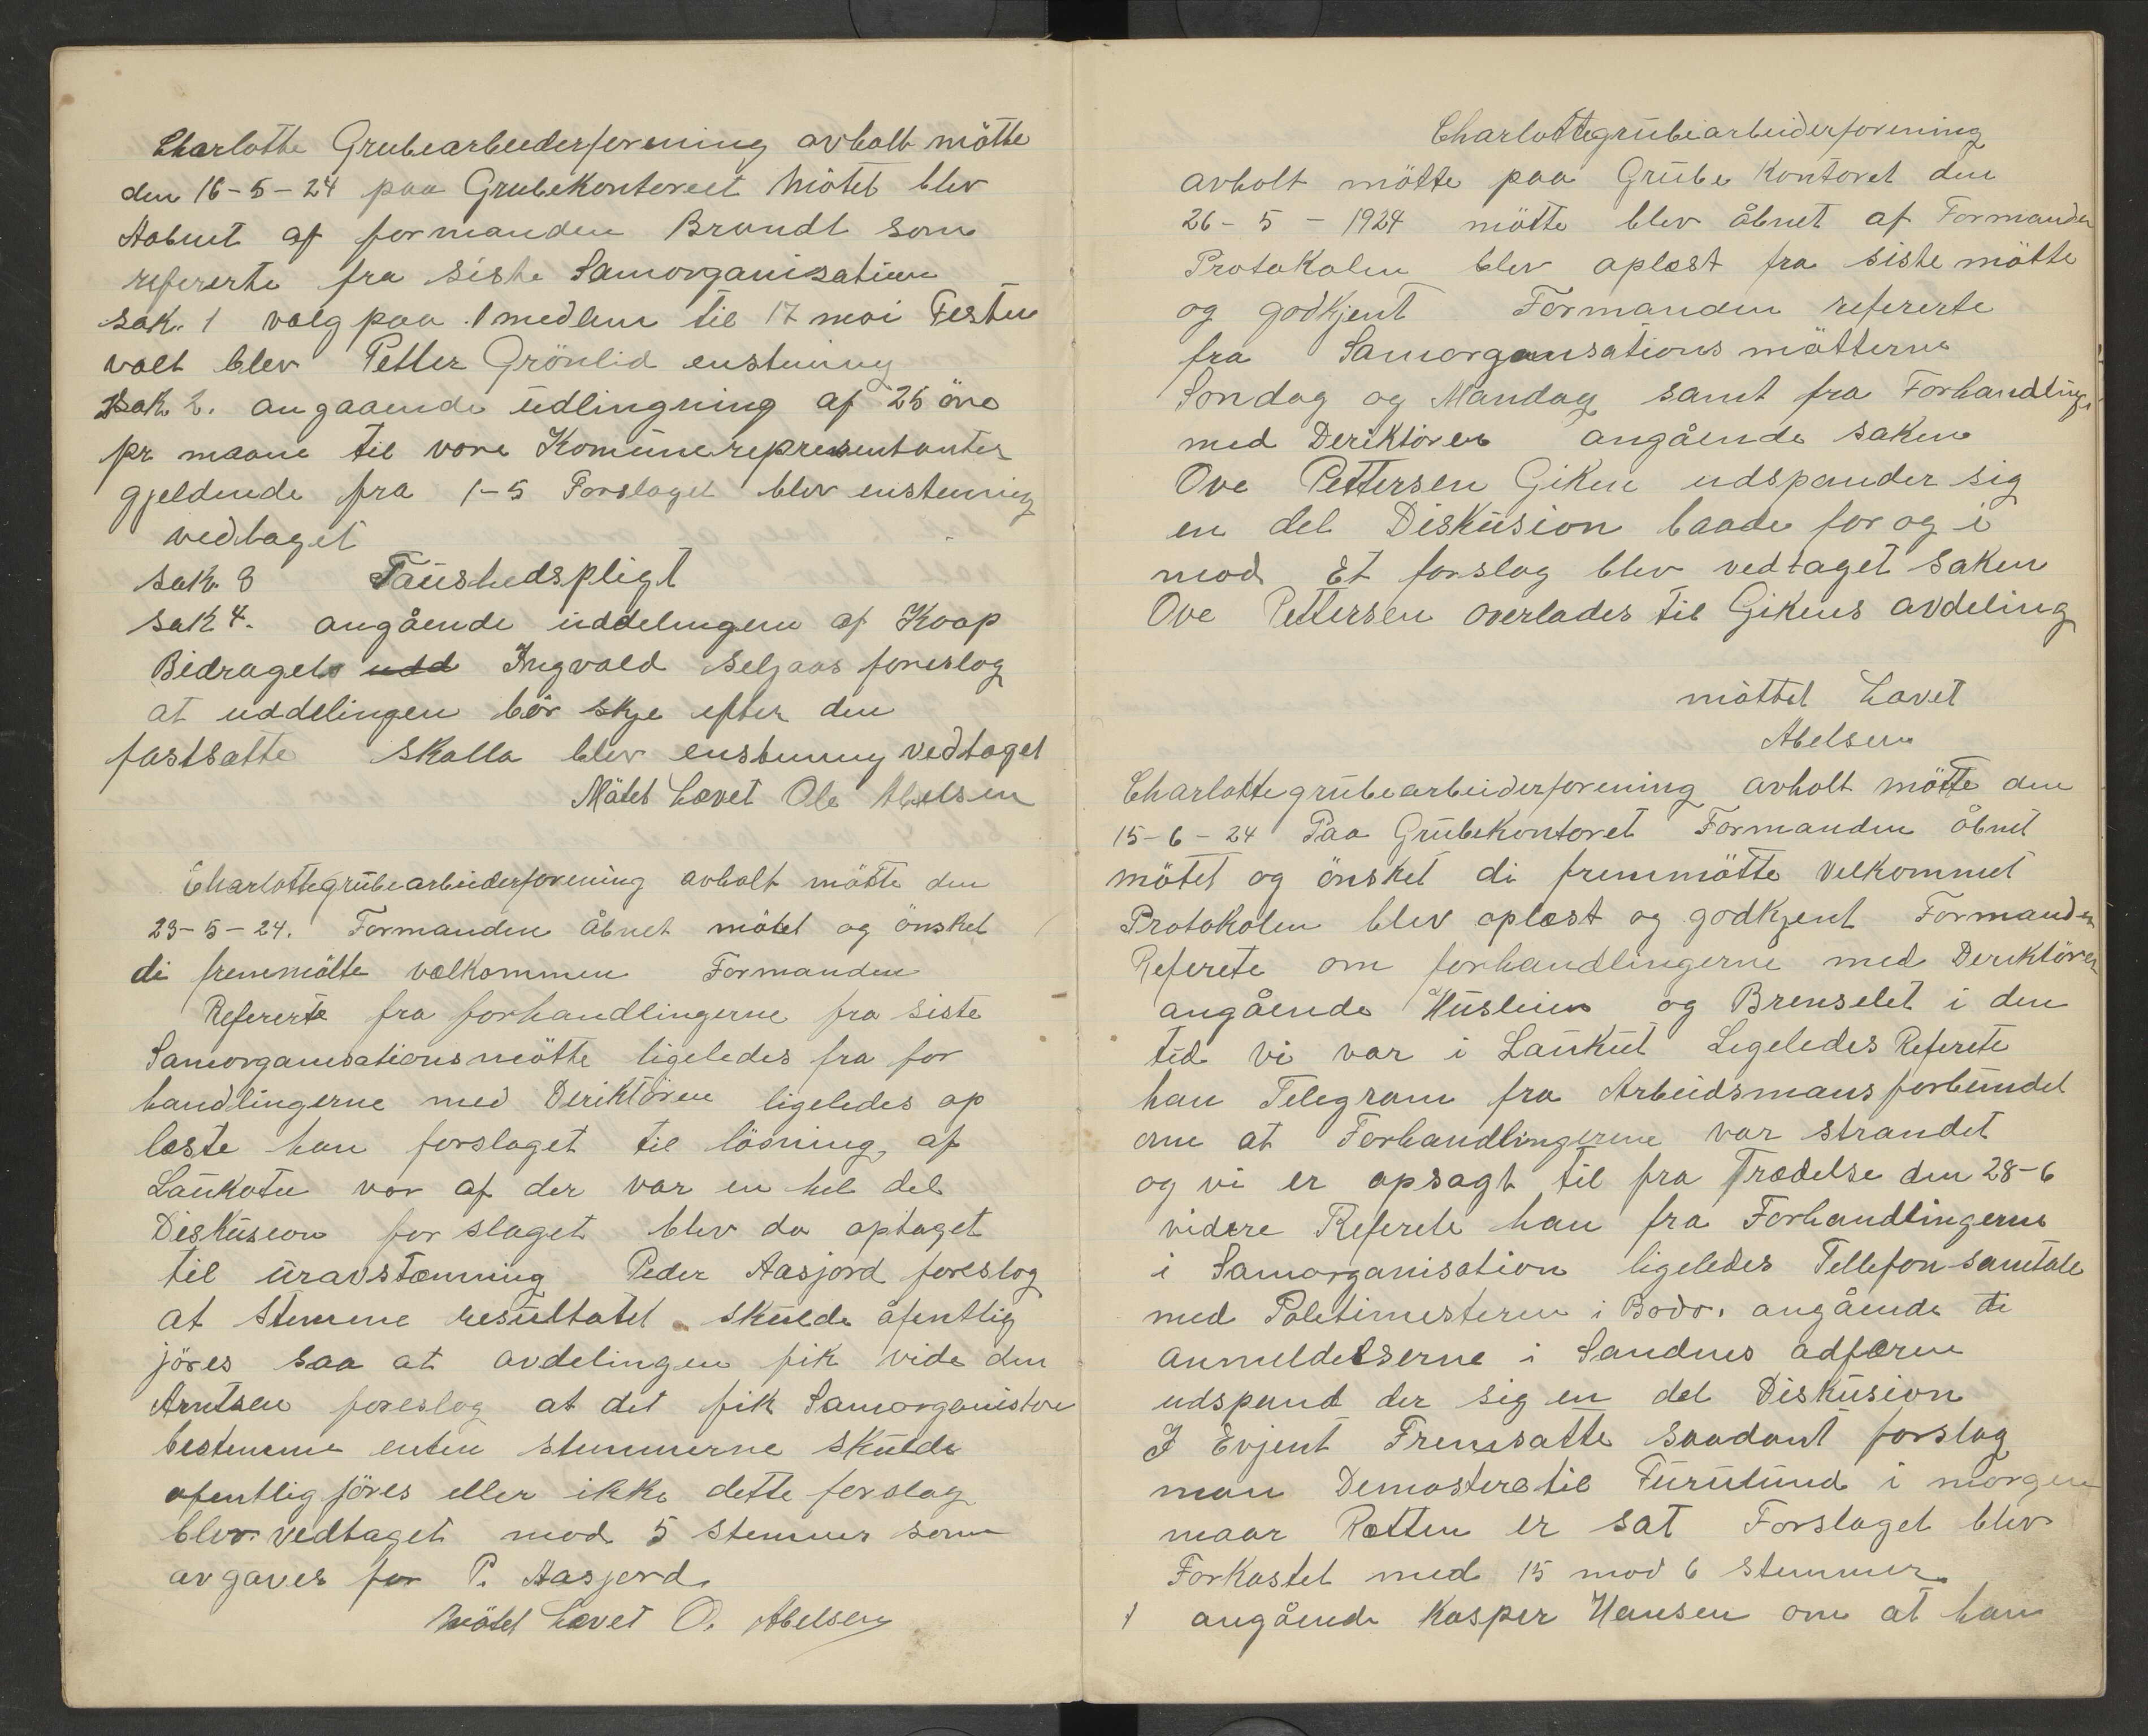 Charlotte Grubearbeiderforening avholt mötte
den 16-5-24 paa Grubekontoreet Mötet blev
Aabnet af formanden Brandt som
refererte fra siste Samorganisation
sak. 1 valg paa 1 medlem til 17 mai Festen
valt blev Petter Grönlid enstemig
Sak 2. angaaende udlingning af 25 öre
pr maane til vore Komunerepresentanter
gjeldende fra 1-5 Forslaget blev enstemig
vedtaget
sak. 3 Taushedspligt
sak 4. angående uddelingen af Koop
Bidraget udd Ingvald Seljaas foreslog
at uddelingen bör skje efter den
fastsatte skalla blev enstemig vedtaget
Mötet hævet Ole Abelsen
Charlottegrubearbeiderforening avholt mötte den
23-5-24. Formanden åbnet mötet og önsket
di fremmötte velkommen Formanden
Refererte fra forhandlingerne fra siste
Samorganisationsmötte ligeledes fra for
handlingerne med Deriktören ligeledes op
læste han forslaget til lösning af
Laukoten vor af der var en hel del
Diskusion for slaget blev da optaget
til uravstæmning Peder Aasjord foreslog
at stemme resultatet skulde åfentlig
jöres saa at avdelingen fik vide den
Arntsen foreslog at det fik Samorganistion
bestemme enten stemmerne skulde
ofentlig jöres eller ikke dette forslag
blev vedtaget mod 5 stemmer som
avgaves for P. Aasjord.
Mötet hævet O. Abelsen
Charlottegrubearbeiderforening
avholt mötte paa Grube Kontoret den
26-5-1924 mötte blev åbnet af Formanden
Protokolen blev oplæst fra siste mötte
og godkjent Formanden refererte
fra Samorgansations mötterne
Söndag og Mandag samt fra Forhandlings
med Deriktören angående saken
Ove Pettersen Giken udspander sig
en del Diskusion baade for og i
mod Et forslag blev vedtaget saken
Ove Pettersen overlades til Gikens avdeling
möttet hævet
Abelsen
Charlottegrubearbeiderforening avholt mötte den
15-6-24 Paa Grubekontoret Formanden åbnet
mötet og önsket di fremmötte velkommet
Protokolen blev oplæst og godkjent Formanden
Referete om forhandlingerne med Deriktören
angående Husleien og Brenselet i den
tid vi var i Laukut Ligeledes Referete
han Telegram fra Arbeidsmansforbundet
om at Forhandlingerne var strandet
og vi er opsagt til fra Trædelse den 28-6
videre Referete han fra Forhandlingerne
i Samorganisation ligeledes Tellefon samtale
med Politimesteren i Bodö. angående di
anmeldelserne i Sandnes adfæren
udspand der sig en del Diskusion
J Evjent Fremsatte saadant forslag
man Demostere til Furulund i morgen
maar Retten er sat Forslaget blev
Forkastet med 15 mod 6 stemmer
1 angående Kasper Hansen om at han